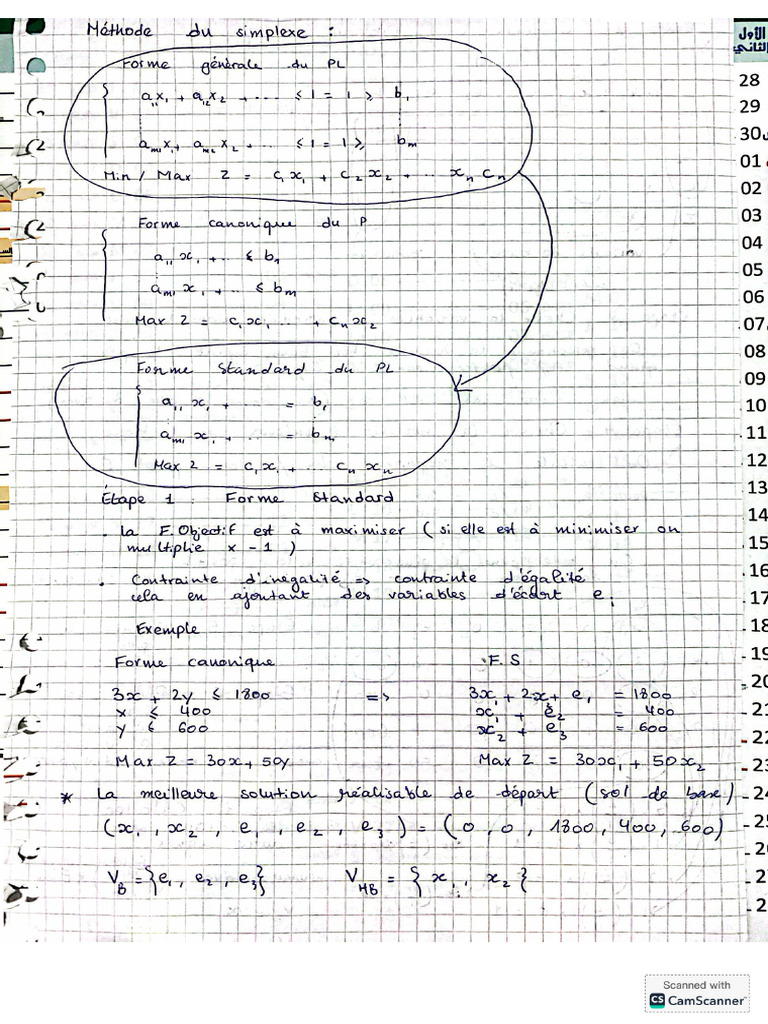 Méthode du simplexe :
Forme générale du PL
a₁₁x₁ + a₁₂x₂ + .... ≤ | = | ≥ b₁
am₁x₁ + am₂x₂ + ... ≤ | = | ≥ bm
Min / Max Z = c₁x₁ + c₂x₂ + ... xn cn
Forme canonique du P
a₁₁x₁ + .. ≤ b₁
am₁x₁ + .. ≤ bm
Max Z = c₁x₁ ... + cnx₂
Forme Standard du PL
a₁₁x₁ + ... = b₁
am₁x₁ + ... = bm
Max Z = c₁x₁ + ... cnxn
Étape 1 : Forme Standard
. la F.Objectif est à maximiser ( si elle est à minimiser on
multiplie x -1 )
. Contrainte d'inegalité => contrainte d'égalité
cela en ajoutant des variables d'écart ei
Exemple
Forme canonique F.S
3x + 2y ≤ 1800 => 3x₁ + 2x + e₁ = 1800
x ≤ 400 x₁ + e₂ = 400
y ≤ 600 x₂ + e₃ = 600
Max Z = 30x + 50y Max Z = 30x₁ + 50x₂
* La meilleure solution réalisable de départ (sol de base)
(x₁, x₂, e₁, e₂, e₃) = (0, 0, 1800, 400, 600)
VB = {e₁, e₂, e₃} VHB = {x₁, x₂}
الأول
الثاني
28
29
30
01
02
03
04
05
06
07
08
09
10
11
12
13
14
15
16
17
18
19
20
21
22
23
24
25
26
27
2
Scanned with
CS CamScanner